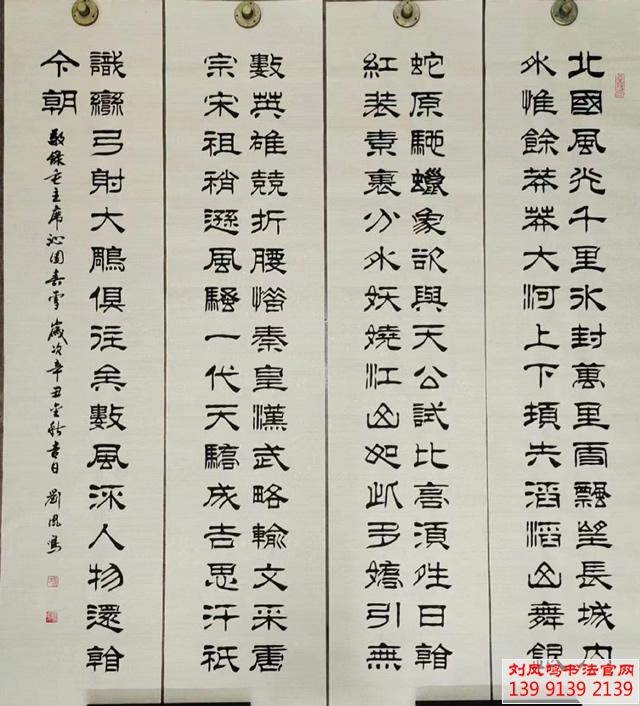 北國風光千里冰封萬里雪飄望長城内
外惟餘莽莽大河上下頓失滔滔山舞銀
蛇原馳蠟象欲與天公試比高須晴日看
紅裝素裹分外妖嬈江山如此多嬌引無
數英雄競折腰惜秦皇漢武略輸文采唐
宗宋祖稍遜風騷一代天驕成吉思汗祇
識彎弓射大鵰俱往矣數風流人物還看
今朝
敬錄毛主席沁園春雪 歲次辛丑金秋吉日 劉鳳鳴
刘凤鸣书法官网
139 9139 2139